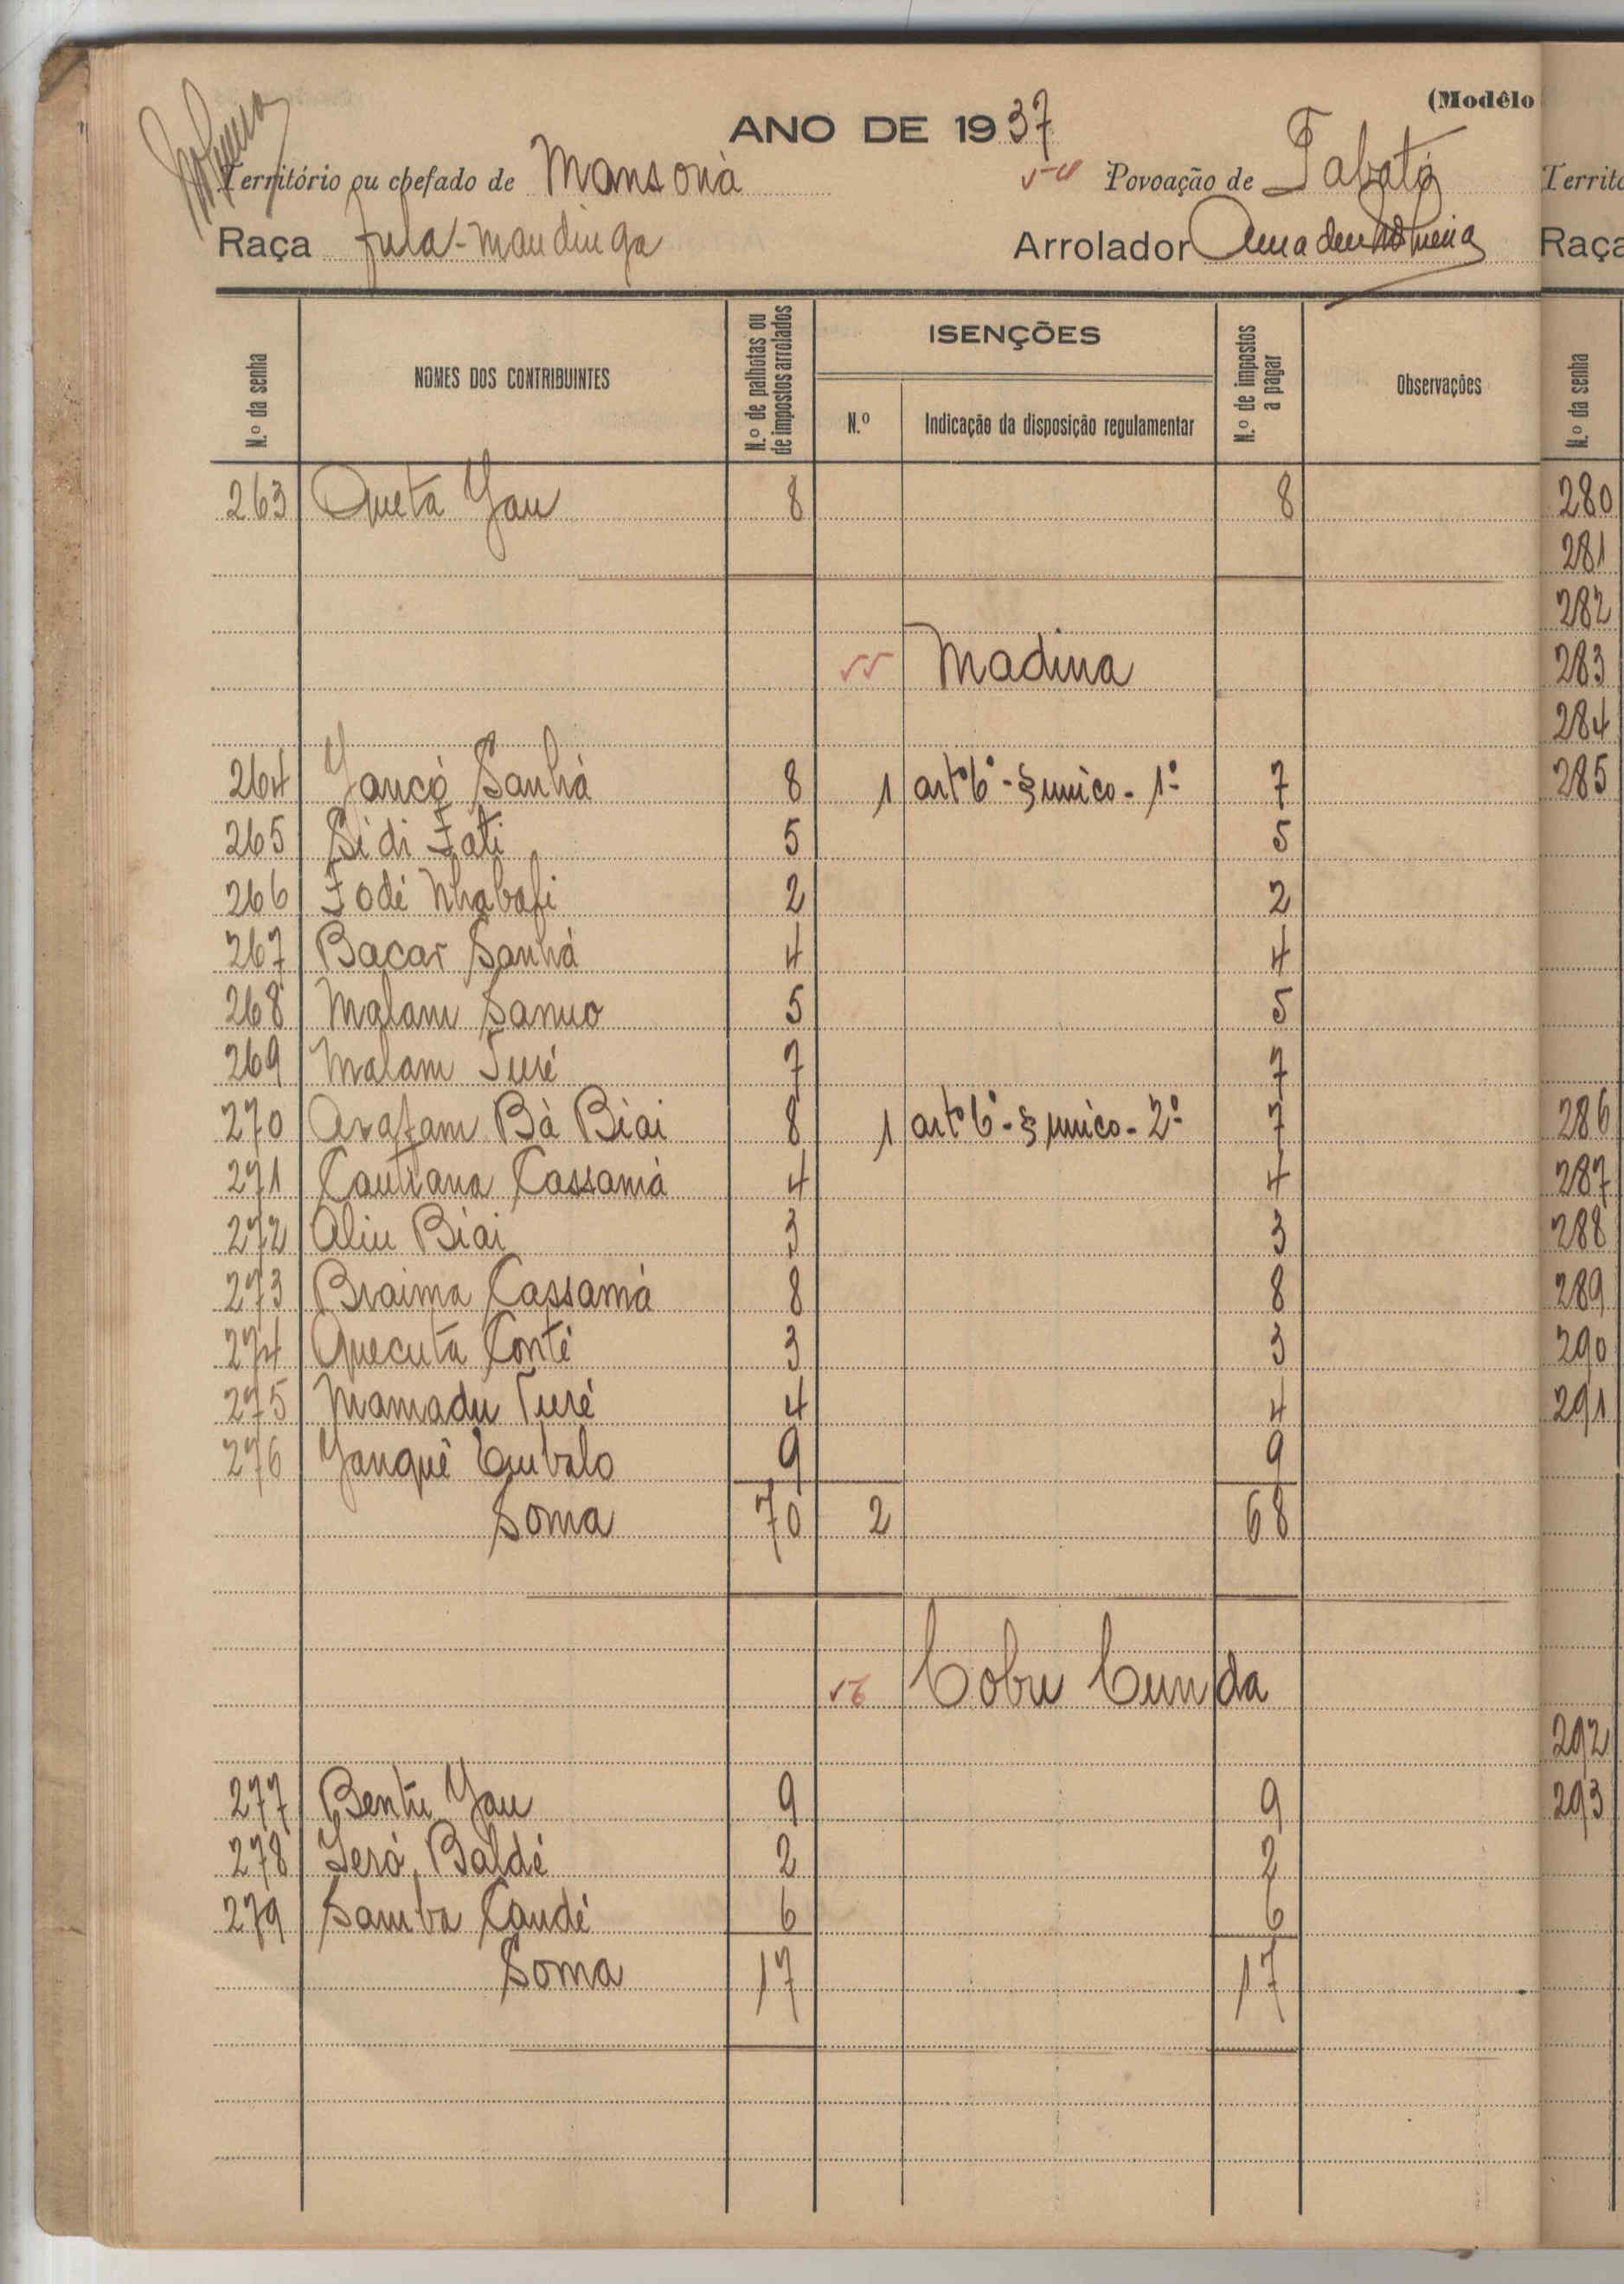 (Modêlo
ANO DE 1937
Território ou chefado de Mansonà Povoação de Tabató
Raça fula-mandinga Arrolador Amadeu
N.º da senha NOMES DOS CONTRIBUINTES N.º de palhotas ou de impostos arrolados ISENÇÕES N.º Indicação da disposição regulamentar N.º de impostos a pagar Observações
263 Queta Jau 8 8
55 Madina
264 Jancó Sanhà 8 1 artº 6º - § unico - 1º 7
265 Sidi Fati 5 5
266 Fodé Nhabali 2 2
267 Bacar Sanhà 4 4
268 Malam Sanuo 5 5
269 Malam Turé 7 7
270 Arafam Bà Biai 8 1 artº 6º - § unico - 2º 7
271 Cassamà 4 4
272 Aliu Biai 3 3
273 Braima Cassamà 8 8
274 Quecuta Conté 3 3
275 Mamadu Turé 4 4
276 Janquê Embalo 9 9
Soma 70 2 68
56 Cobu Cunda
277 Bentu Jau 9 9
278 Jeró Baldé 2 2
279 Samba Candé 6 6
Soma 17 17
Territó
Raça
N.º da senha
280
281
282
283
284
285
286
287
288
289
290
291
292
293